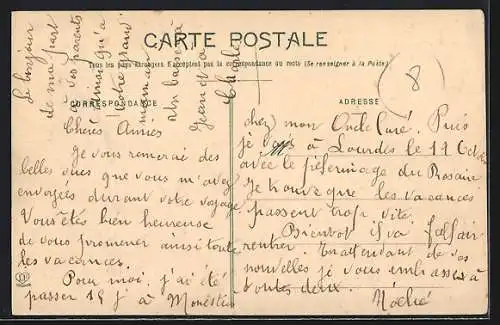 CARTE POSTALE
Tous les pays étrangers n'acceptent pas la correspondance au recto (Se renseigner à la Poste)
CORRESPONDANCE
ADRESSE
8
Chères Amies
Je vous remerai des
belles vues que vous m'avez
envoyés durant votre voyage
Vous êtes bien heureuse
de vous promener ainsi toute
les vacances.
Pour moi, j'ai été
passer 15 j à
chez mon Oncle Curé. Puis
je vais à Lourdes le 11 Octobre
avec le pélerinage du Rosaire
Je trouve que les vacances
passent trop vite.
Bientot il va falloir
rentrer. En attendant de vos
nouvelles je vous embrasse à
toutes deux.
Le bonjour
de ma part
à vos parents
ainsi qu'à
votre grand
maman
Un baiser à
Jean et à
Charles